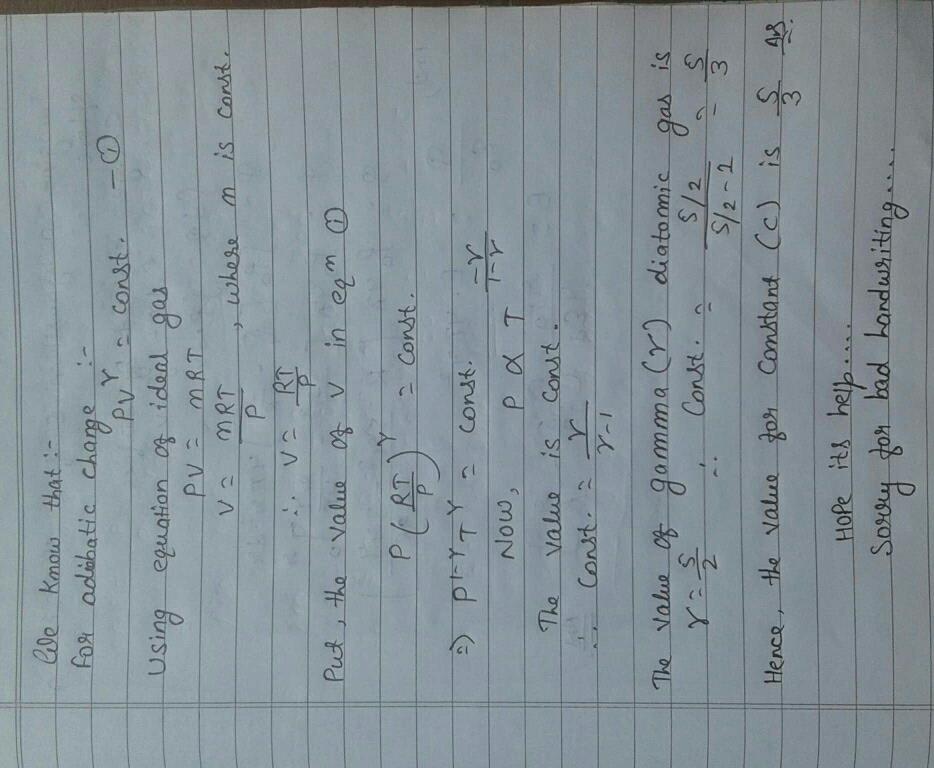 We know that :-
For adibatic change :-
PV^γ = const. - ①
Using equation of ideal gas
PV = nRT
V = nRT/P , where n is const.
∴ V = RT/P
Put, the value of V in eqn ①
P(RT/P)^γ = const.
=> P^1-γ T^γ = const.
Now, P α T^-γ/1-γ
The value is const.
∴ Const. = γ/γ-1
The value of gamma (γ) diatomic gas is
γ = 5/2 ∴ Const. = 5/2/5/2-2 = 5/3
Hence, the value for constant (c) is 5/3 Ans.
HOPE its help....
Sorry for bad handwriting....